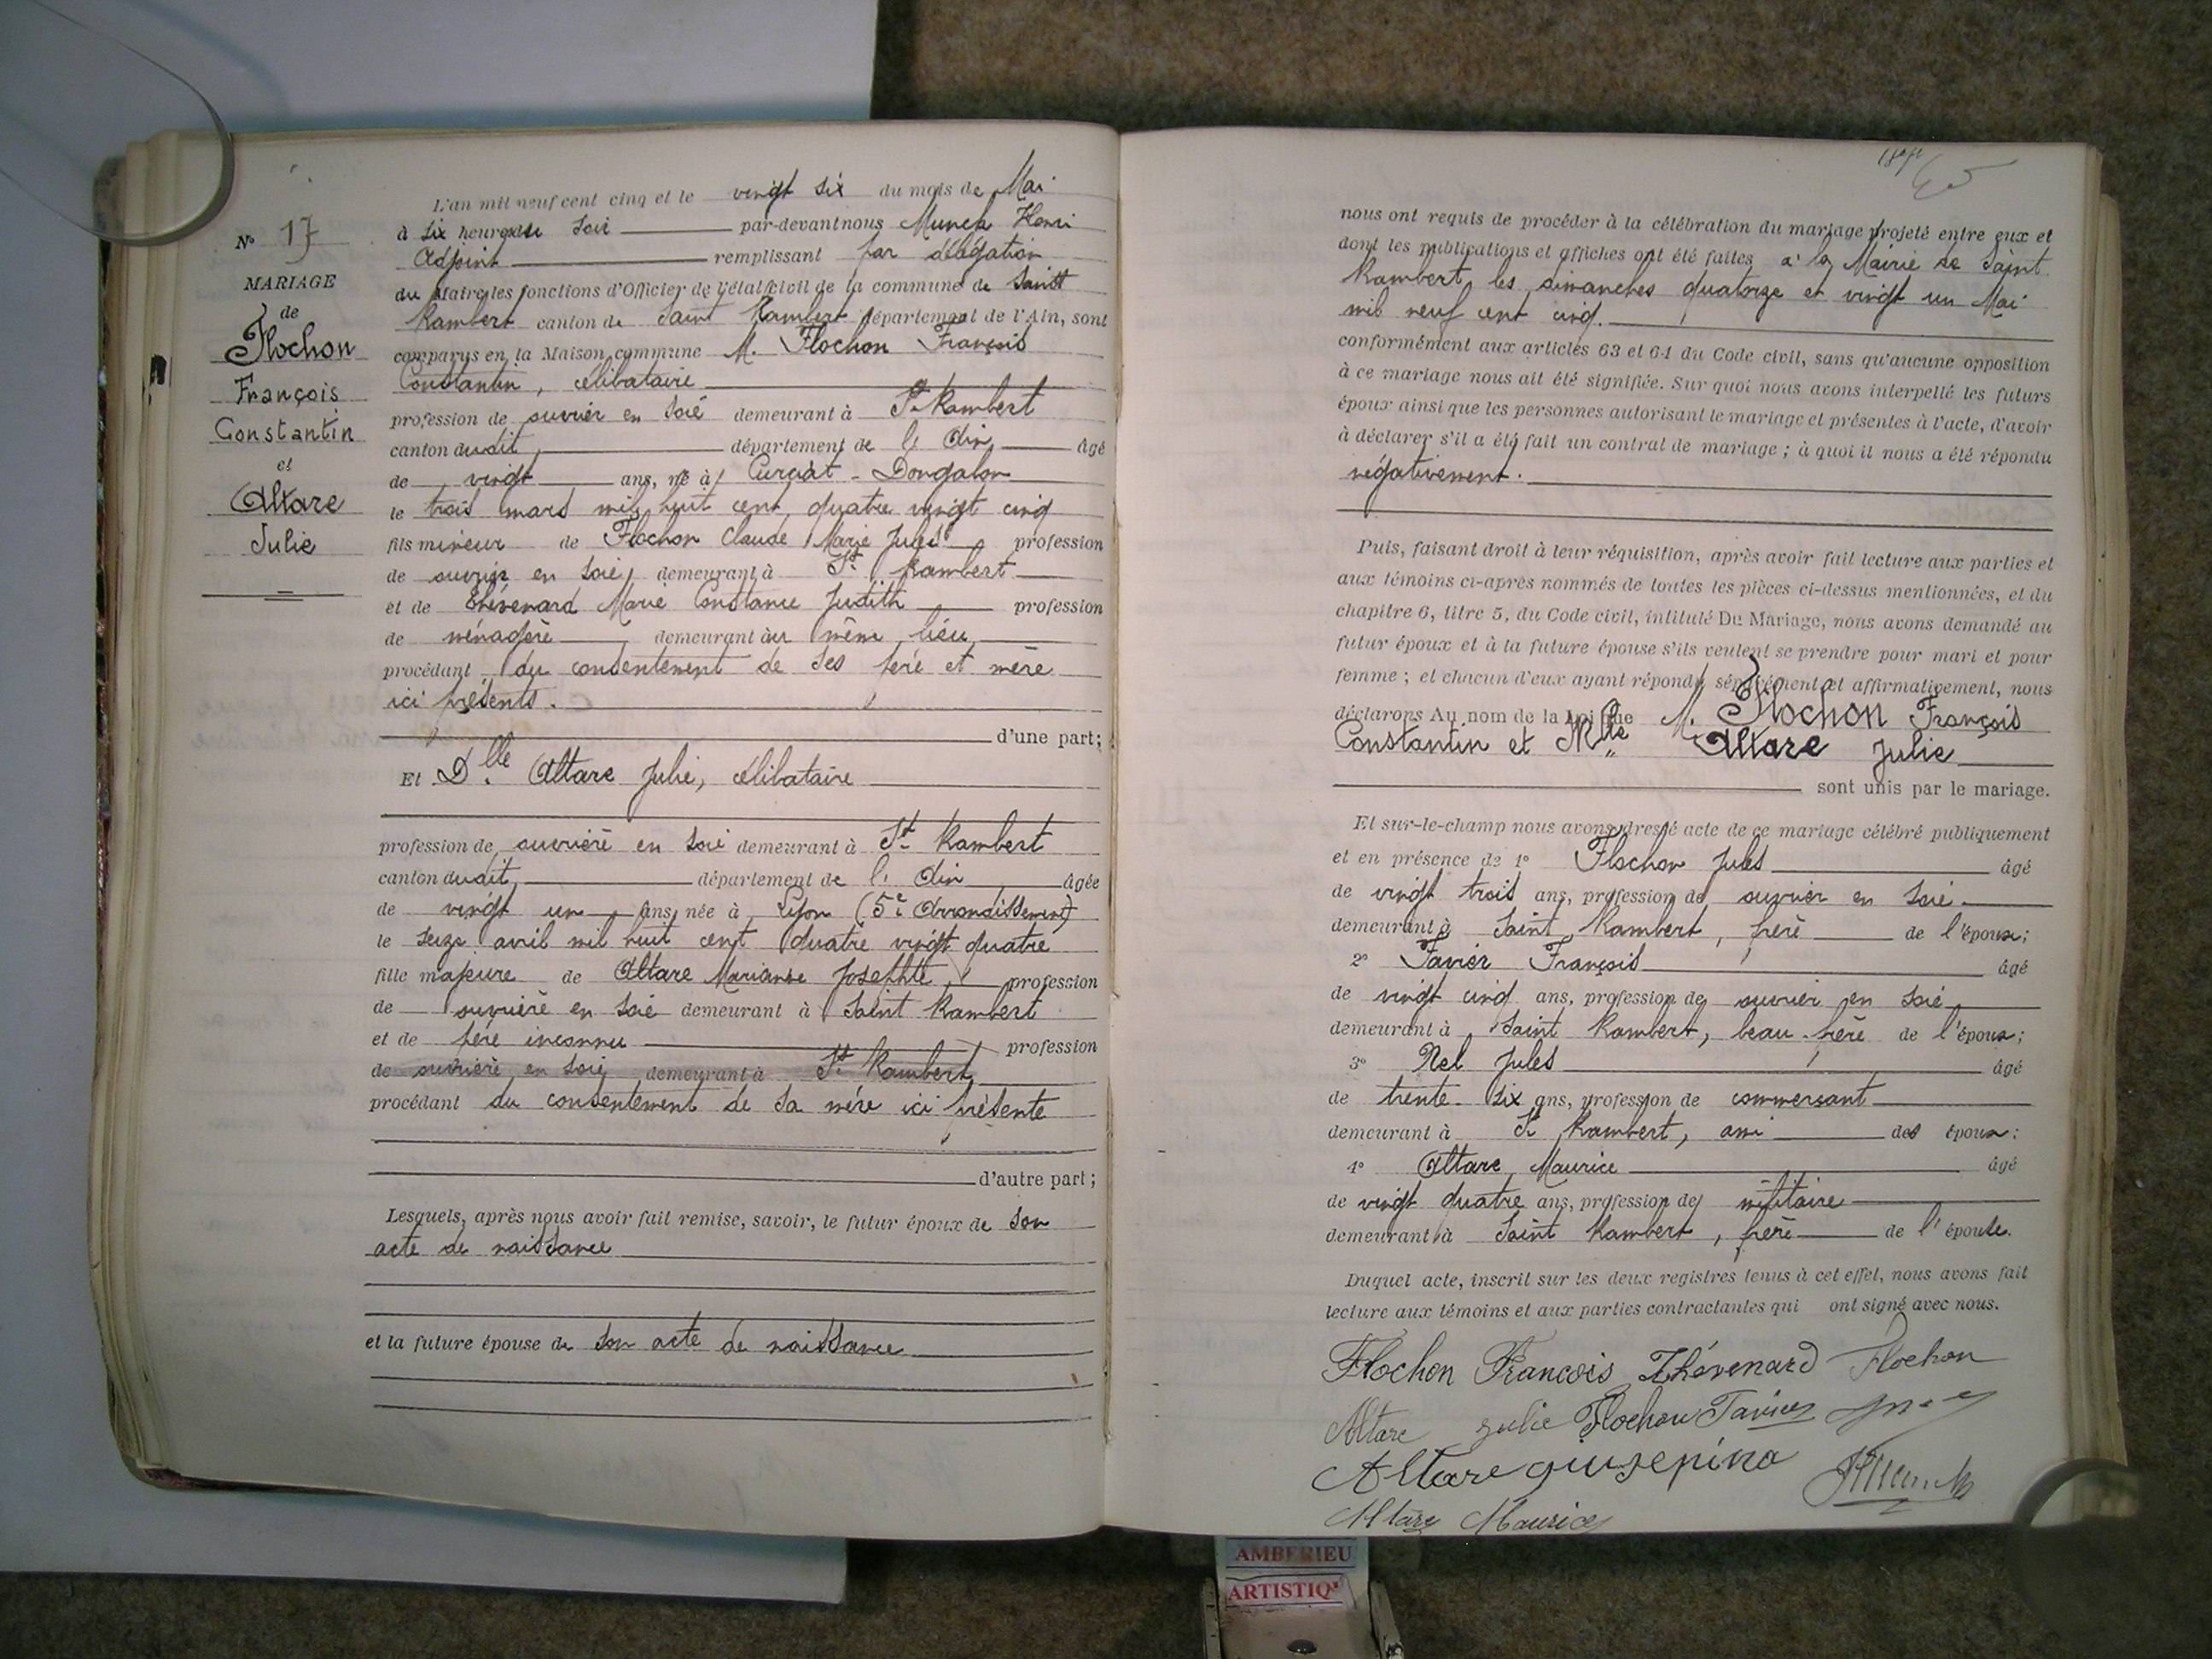 N° 17
MARIAGE
de
Flochon
François
Constantin
et
Altare
Julie
L'an mil neuf cent cinq et le vingt six du mois de Mai
à six heures du soir par-devant nous Munch Henri
Adjoint remplissant par délégation
du Maire les fonctions d'Officier de l'état civil de la commune de Saint
Rambert canton de Saint Rambert département de l'Ain, sont
comparus en la Maison commune M. Flochon François
Constantin, célibataire
profession de ouvrier en soie demeurant à St Rambert
canton dudit département de l'Ain âgé
de vingt ans, né à Curciat-Dongalon
le trois mars mil huit cent quatre vingt cinq
fils mineur de Flochon Claude Marie Jules profession
de ouvrier en soie demeurant à St Rambert
et de Thévenard Marie Constance Judith profession
de ménagère demeurant au même lieu
procédant du consentement de ses père et mère
ici présents.
d'une part;
Et Dlle Altare Julie, célibataire
profession de ouvrière en soie demeurant à St Rambert
canton dudit département de l'Ain âgée
de vingt un ans, née à Lyon (5e Arrondissement)
le seize avril mil huit cent quatre vingt quatre
fille majeure de Altare Marianne Josephte profession
de ouvrière en soie demeurant à Saint Rambert
et de père inconnu profession
de ouvrière en soie demeurant à St Rambert
procédant du consentement de sa mère ici présente
d'autre part;
Lesquels, après nous avoir fait remise, savoir, le futur époux de son
acte de naissance
et la future épouse de son acte de naissance
nous ont requis de procéder à la célébration du mariage projeté entre eux et
dont les publications et affiches ont été faites à la Mairie de Saint
Rambert les dimanches quatorze et vingt un Mai
mil neuf cent cinq.
conformément aux articles 63 et 64 du Code civil, sans qu'aucune opposition
à ce mariage nous ait été signifiée. Sur quoi nous avons interpellé les futurs
époux ainsi que les personnes autorisant le mariage et présentes à l'acte, d'avoir
à déclarer s'il a été fait un contrat de mariage; à quoi il nous a été répondu
négativement.
Puis, faisant droit à leur réquisition, après avoir fait lecture aux parties et
aux témoins ci-après nommés de toutes les pièces ci-dessus mentionnées, et du
chapitre 6, titre 5, du Code civil, intitulé Du Mariage, nous avons demandé au
futur époux et à la future épouse s'ils veulent se prendre pour mari et pour
femme; et chacun d'eux ayant répondu séparément et affirmativement, nous
déclarons Au nom de la Loi que M. Flochon François
Constantin et Mlle Altare Julie
sont unis par le mariage.
Et sur-le-champ nous avons dressé acte de ce mariage célébré publiquement
et en présence de 1° Flochon Jules âgé
de vingt trois ans, profession de ouvrier en soie
demeurant à Saint Rambert, frère de l'époux;
2° Tavier François âgé
de vingt cinq ans, profession de ouvrier en soie
demeurant à Saint Rambert, beau-frère de l'époux;
3° Nel Jules âgé
de trente-six ans, profession de commerçant
demeurant à St Rambert, ami des époux;
4° Altare Maurice âgé
de vingt quatre ans, profession de militaire
demeurant à Saint Rambert, frère de l'épouse.
Duquel acte, inscrit sur les deux registres tenus à cet effet, nous avons fait
lecture aux témoins et aux parties contractantes qui ont signé avec nous.
Flochon François Thévenard Flochon
Altare julie Flochon Tavier
Altare giusepina
Altare Maurice
AMBERIEU
ARTISTIQ